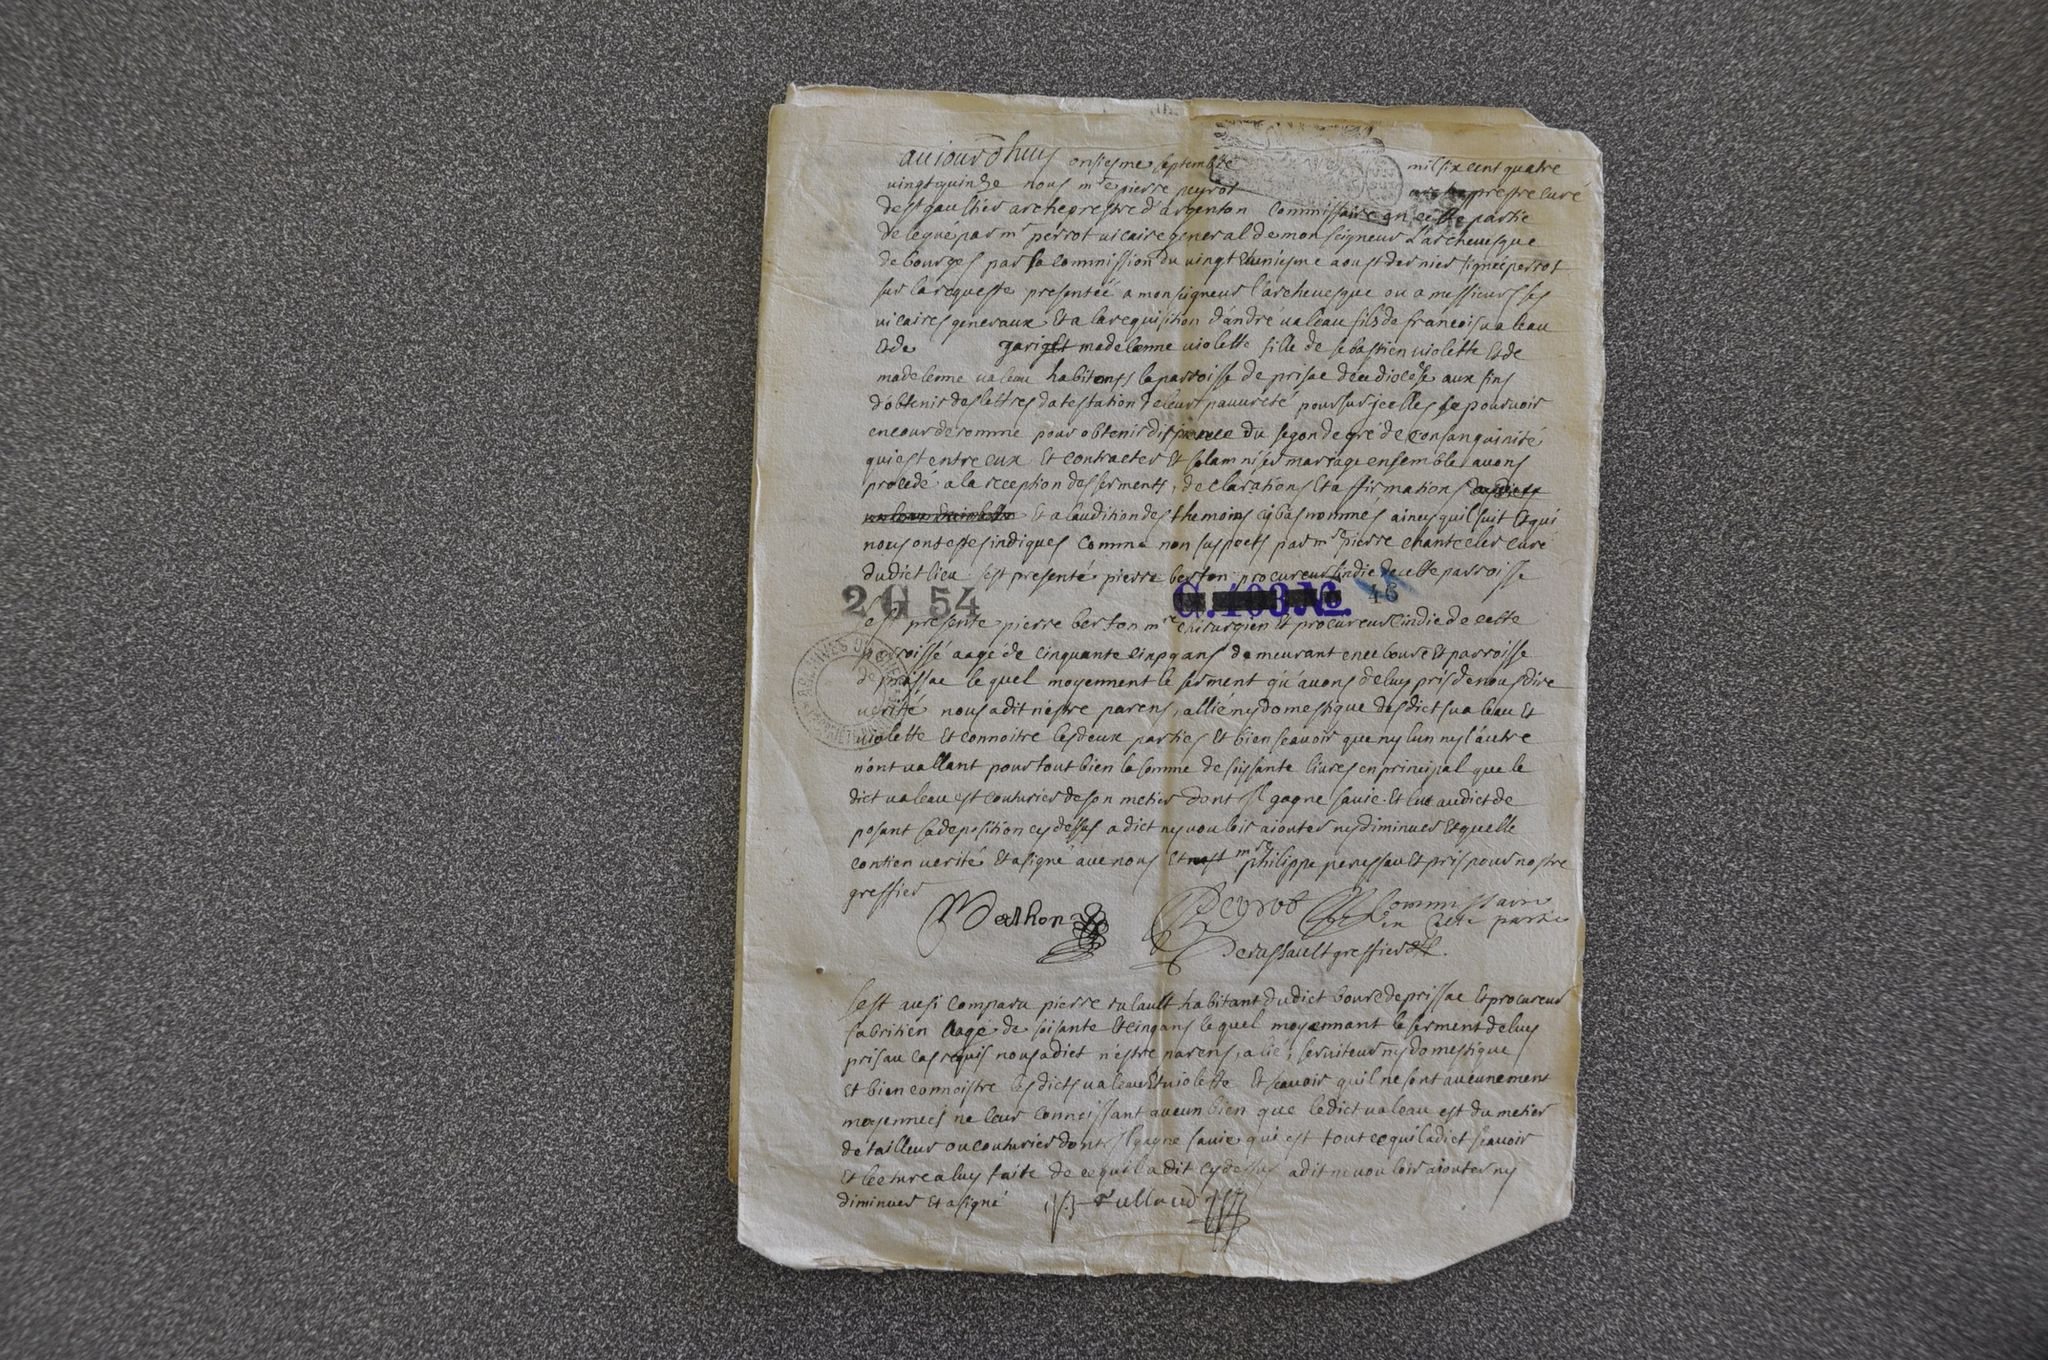 aujourdhuy onsiesme septembre mil six cent quatre
vingt quinze nous mre pierre peyrot prestre curé
de st gaultier archeprestre d'argenton commissaire en cette partie
delegué par mr perrot vicaire general de monseigneur l'archevesque
de bourges par sa commission du vingt uniesme aoust dernier signée perrot
sur la requeste presentéé a monseigneur l'archevesque ou a messieurs ses
vicaires generaux et a la requisition d'andré valeau fils de francois valeau
et de madelenne violette fille de sebastien violette et de
madelenne valeau habitens la parroisse de prisac de ce diocése aux fins
d'obtenir des lettres datestation de leur pauvreté pour sur jcelles se pourvoir
en cour de romme pour obtenir dispence du segon degré de consanguinité
qui est entre eux et contracter et solamniser marriage ensemble avons
procédé a la reception des serments, declarations et affirmations
et a laudition des themoins cy bas nommés ainsy quil suit et qui
nous ont estes indiques comme non suspects par mre pierre chanteler curé
du dict lieu sest presenté pierre berton procureur sindic de cette parroisse
2 G 54 C. 103 No. 46
sest presente pierre berton mre chirurgien et procureur sindic de cette
parroissé aagé de cinquante cinq ans demeurant en ce bourc et parroisse
de prissac le quel moyennent le serment qu'avons de luy pris de nous dire
verité nous a dit n'estre parens, allié ny domestique des dicts valeau et
violette et connoitre les deux parties et bien scavoir que ny lun ny l'autre
n'ont vallant pour tout bien la somme de soissante livres en principal que le
dict valeau est couturier de son metier dont il gagne sa vie. et lue au dict de
posant sa deposition cy dessus a dict ny vouloir aiouter ny diminuer et quelle
contien verité et a signé avec nous et mre philippe perussau et pris pour nostre
greffier
Bethon Peyrot Commissaire
en cette partie
Perussault greffier
sest ausi comparu pierre rulault habitant du dict bourc de prissac et procureur
fabricien aagé de soisante et cinq ans le quel moyennant le serment de luy
pris au cas requis nous a dict n'estre parens, alié, serviteur ny domestique
et bien connoistre les dicts valeau et violette et scavoir quil ne sont aucunement
moyennés ne leur connoissant aucun bien que le dict valeau est du metier
de tailleur ou couturier dont il gagne sa vie qui est tout ce quil a dict scavoir
et lecture a luy faite de ce quil a dit cy dessus a dit ne vouloir aiouter ny
diminuer et a signé Rullaud